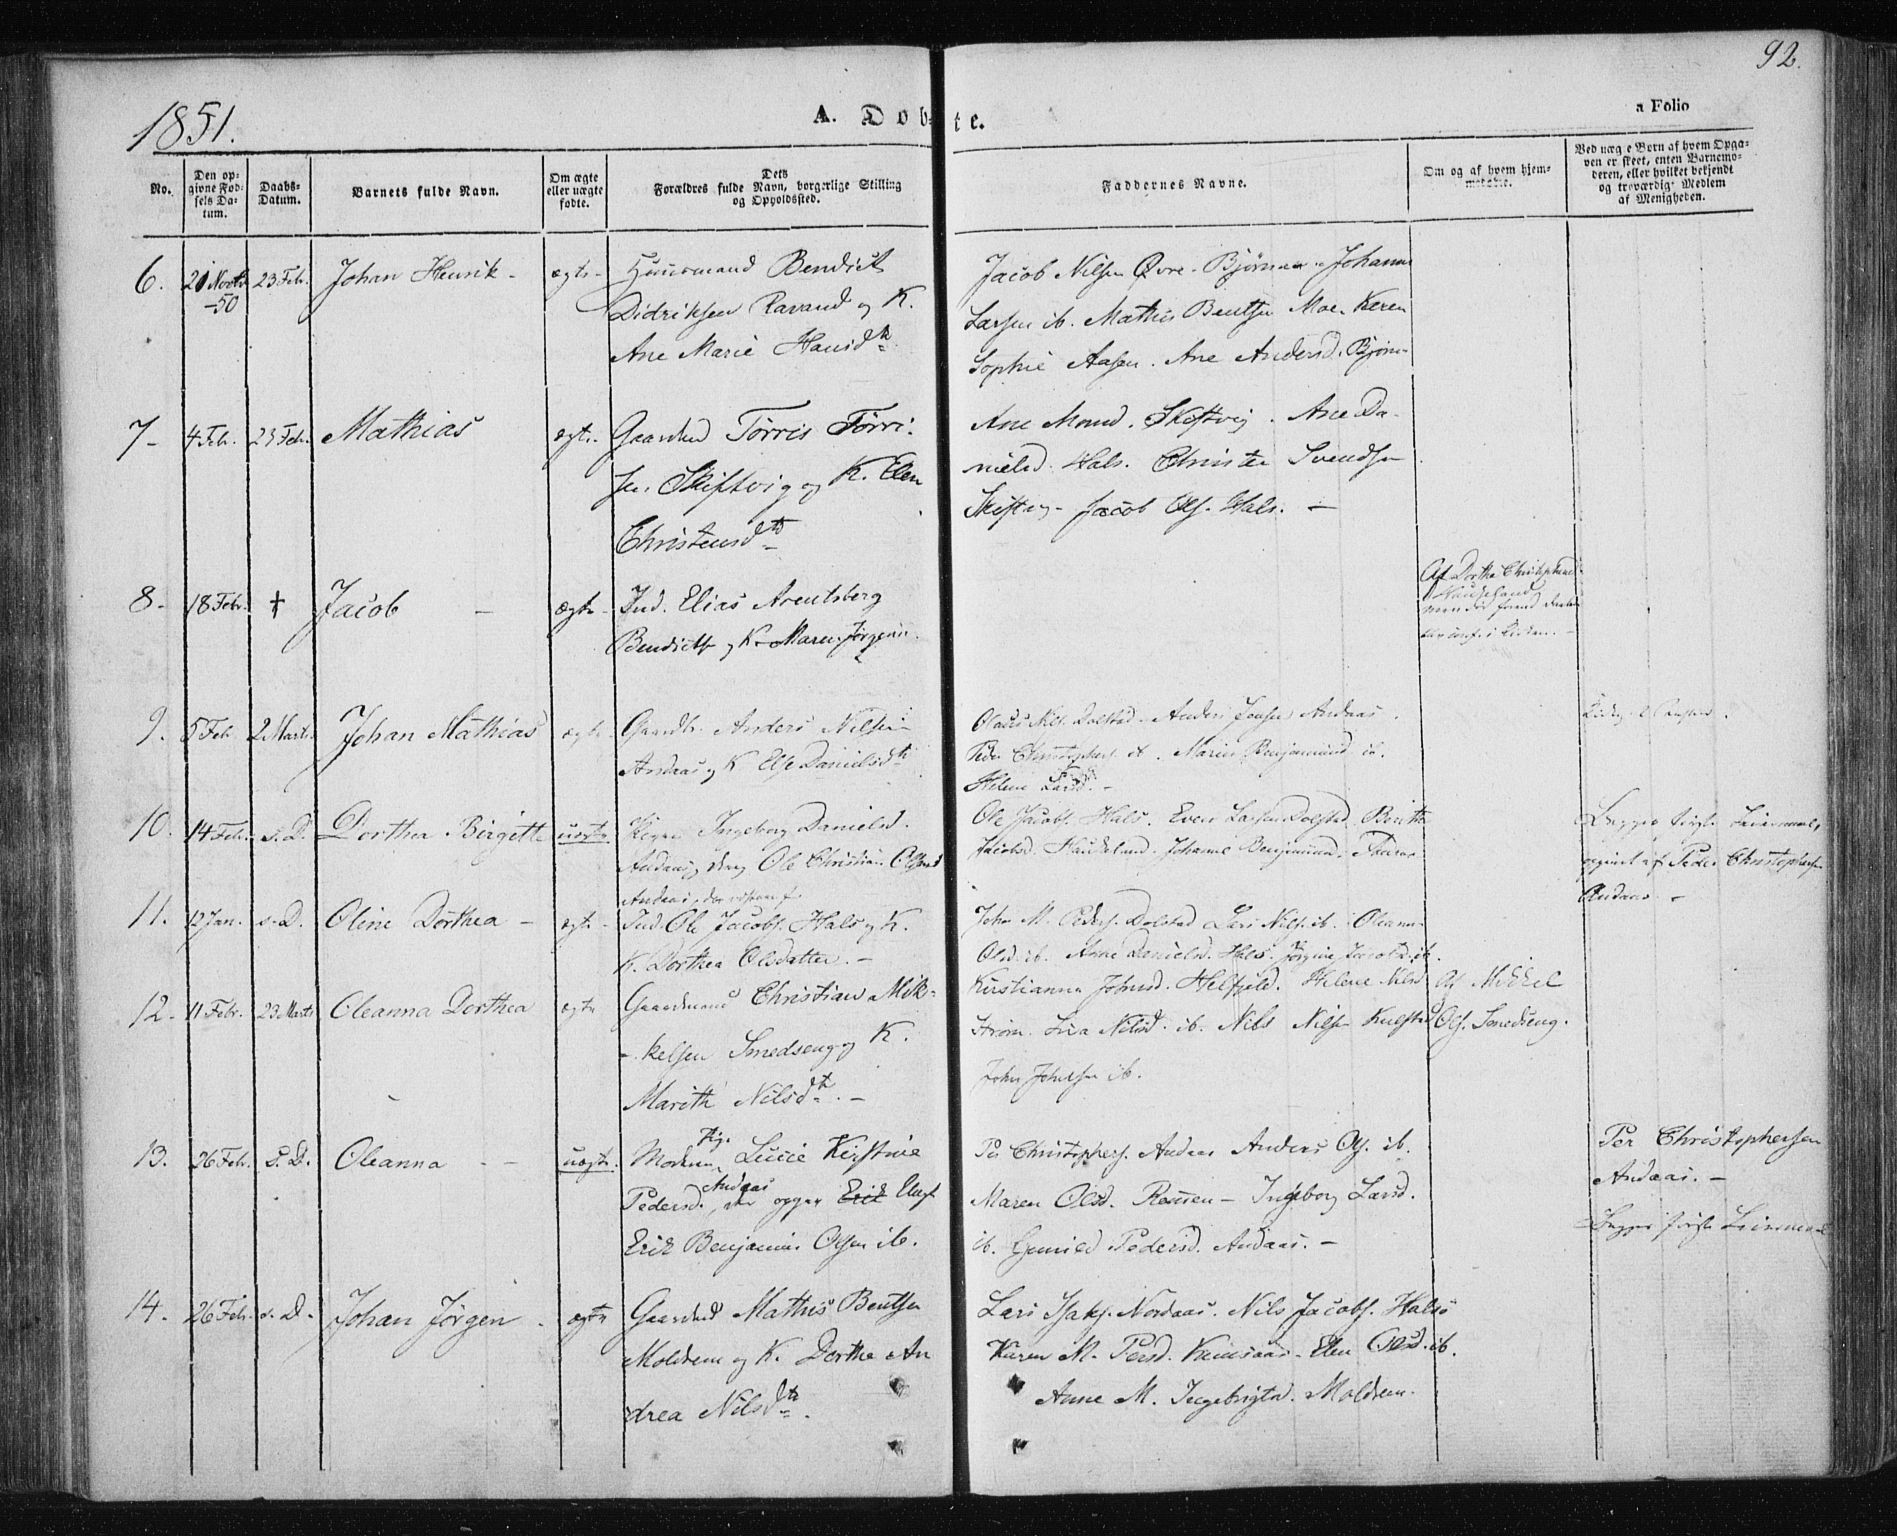 92.
1851.
A. Dobte.
a Folio
No.
Den op-
givne Fød-
sels Da-
tum.
Daabs-
Datum.
Barnets fulde Navn.
Om ægte
eller uægte
fødte.
Dets
Forældres fulde Navn, borgerlige Stilling
og Opholdssted.
Faddernes Navne.
Om og af hvem hjem-
Ved uæg e Børn af hvem Opga-
ven er skeet, enten Barnemo-
deren, eller hvilket bekjendt
og troværdigt Medlem
af Menigheden.
6. 21 Novbr 23 Febr. Johan Henrik - ægte - Huusmand Bendict
-50
Didriksen Ravand og K.
Ane Marie Hansdtr
Jacob Nilsen Øvre - Johan
Larsen ib. Mathis Bentsen Moe. Karen
Sophie Aasen. Ane Andersd.
7- 4 Feb. 23 Feb. Mathias ægte. Gaardmd Tørris Tørri-
sen Skiftvig og K. Elen
Christensdtr
Ane Monsd. Skiftvig. Ane Da-
nielsd. Hals. Christen Svendsen
Skiftvig - Jacob Ols. Hals. -
8- 18 Febr. † Jacob - ægte - Ind. Elias Arentsberg
Bendicts og K. Maren
Af Dorthe
9. 5 Feb. 2 Marts Johan Mathias ægte Gaardbr. Anders Nilsen
Andaas og K Else Danielsdtr
Nils. Dolstad - Anders Jensen Andaas.
Peder Christophers. ib. Maren Benjaminsd ib.
Helene Larsd. -
10. 14 Feb. s. D. Dorthea Birgitte uægte Pigen Ingeborg Danielsd
Andaas, Ole Christian Olsen
Andaas,
Ole Jacobs. Hals. Even Larsen Dolstad. Biritte
Jacobsd. Haukeland. Johanna Benjaminsd.
Begges første Leiermaal,
opgivet af Peder Christophersen
Andaas -
11. 12 Jan. s. D. Oline Dorthea - ægte - Ind. Ole Jacobs. Hals og K.
K. Dorthea Olsdatter. -
John M. Peders. Dolstad Lars Nils. ib. Oleana
Olsd. ib. Anne Danielsd. Hals. Jørgine Jacobsd. ib.
12. 11 Febr. 23 Marts Oleanna Dorthea ægte Gaardmand Christian Mik-
kelsen Smedseng og K.
Marith Nilsdtr. -
Kirstianna Johnsd. Helfjeld. Helene Nilsd
Strøm. Lisa Nilsd. ib. Nils Nilsen
John Johnsen ib.
Af Mikkel
Ols. Smedseng.
13. 26 Feb. s. D. Oleanna - - uægte. Moderen Pig. Lucie Kirstine
Pedersd. Andaas, der opgav Erik Ungk.
Erik Benjamin Olsen ib.
Pe Christophers. Andaas Anders Ols. ib.
Maren Olsd. - Ingeborg Larsd.
ib. Gunild Pedersd. Andaas. -
Per Christophersen
Andaas. -
Begges første Leiermaal
14. 26 Feb. s. D. Johan Jørgen - ægte Gaardmd Mathis Bentsen
Moldrem og K. Dorthe An
drea Nilsdtr.
Lars Isaks. Nordaas. Nils Jacobs. Hals
Karen M. Persd. - Elen Olsd. ib.
Anne M. Ingebrigtsd. Moldrem.